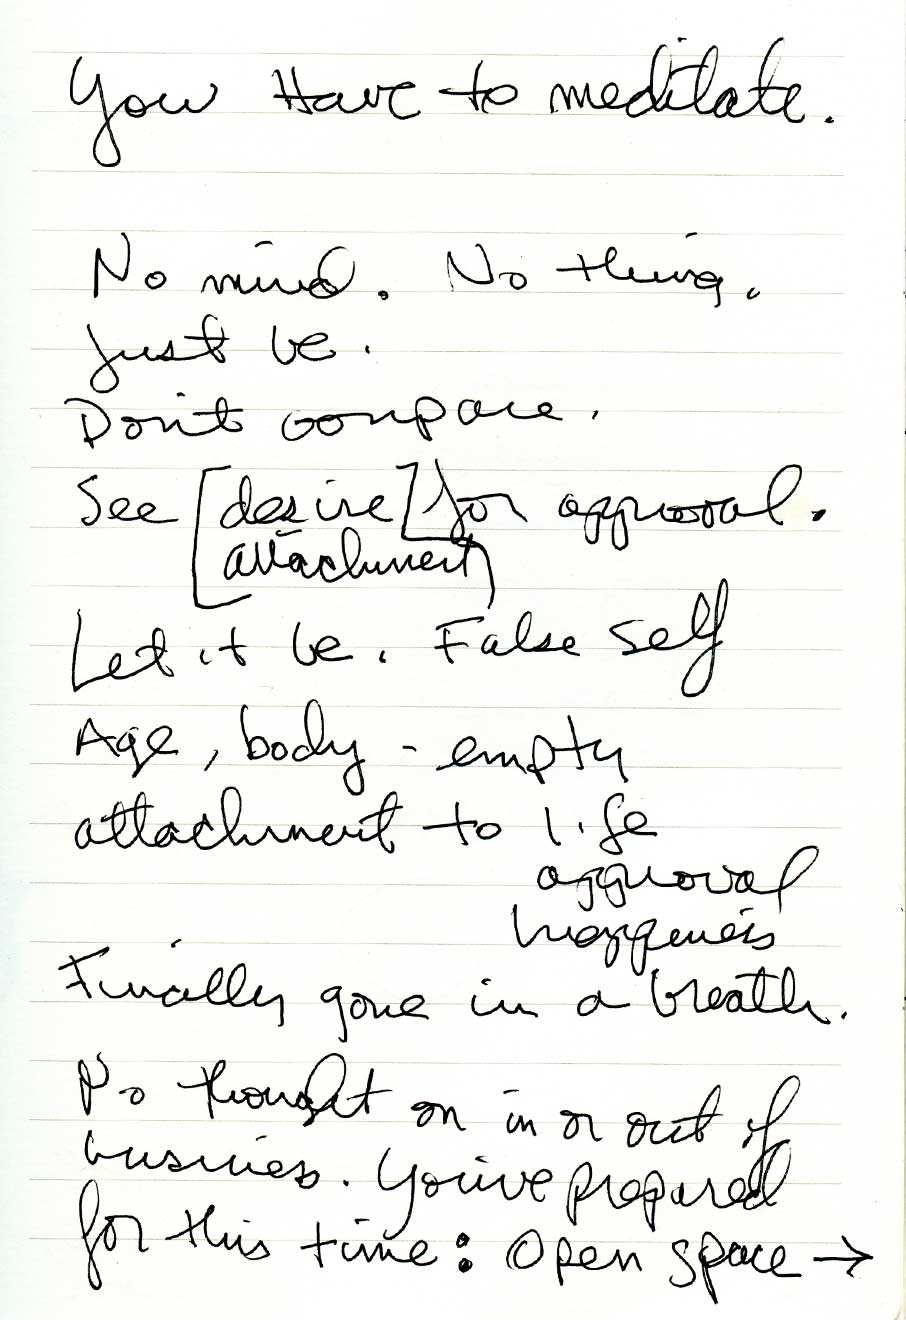 You Have to meditate.
No mind. No thing.
Just be.
Don't compare.
See [desire] for approval.
[attachment]
Let it be. False self
Age, body - empty
attachment to life
approval
happiness
Finally gone in a breath.
No thought on in or out of
business. You've prepared
for this time: Open space →